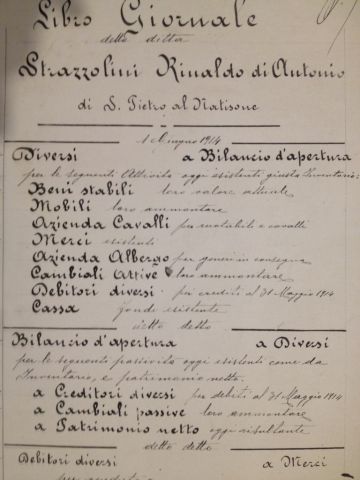 Libro Giornale
della ditta
Strazzolini Rinaldo di Antonio
di S. Pietro al Natisone
1 Giugno 1914
Diversi a Bilancio d'apertura
per le seguenti Attività oggi esistenti giusta Inventario:
Beni stabili loro valore attuale
Mobili loro ammontare
Azienda Cavalli per ruotabili e cavalli
Merci esistenti
Azienda Albergo per generi in consegna
Cambiali Attive loro ammontare
Debitori diversi per crediti al 31 Maggio 1914
Cassa fondo esistente
detto detto
Bilancio d'apertura a Diversi
per le seguenti passività oggi esistenti come da
Inventario, e patrimonio netto.
a Creditori diversi per debiti al 31 Maggio 1914
a Cambiali passive loro ammontare
a Patrimonio netto oggi risultante
detto detto
Debitori diversi a Merci